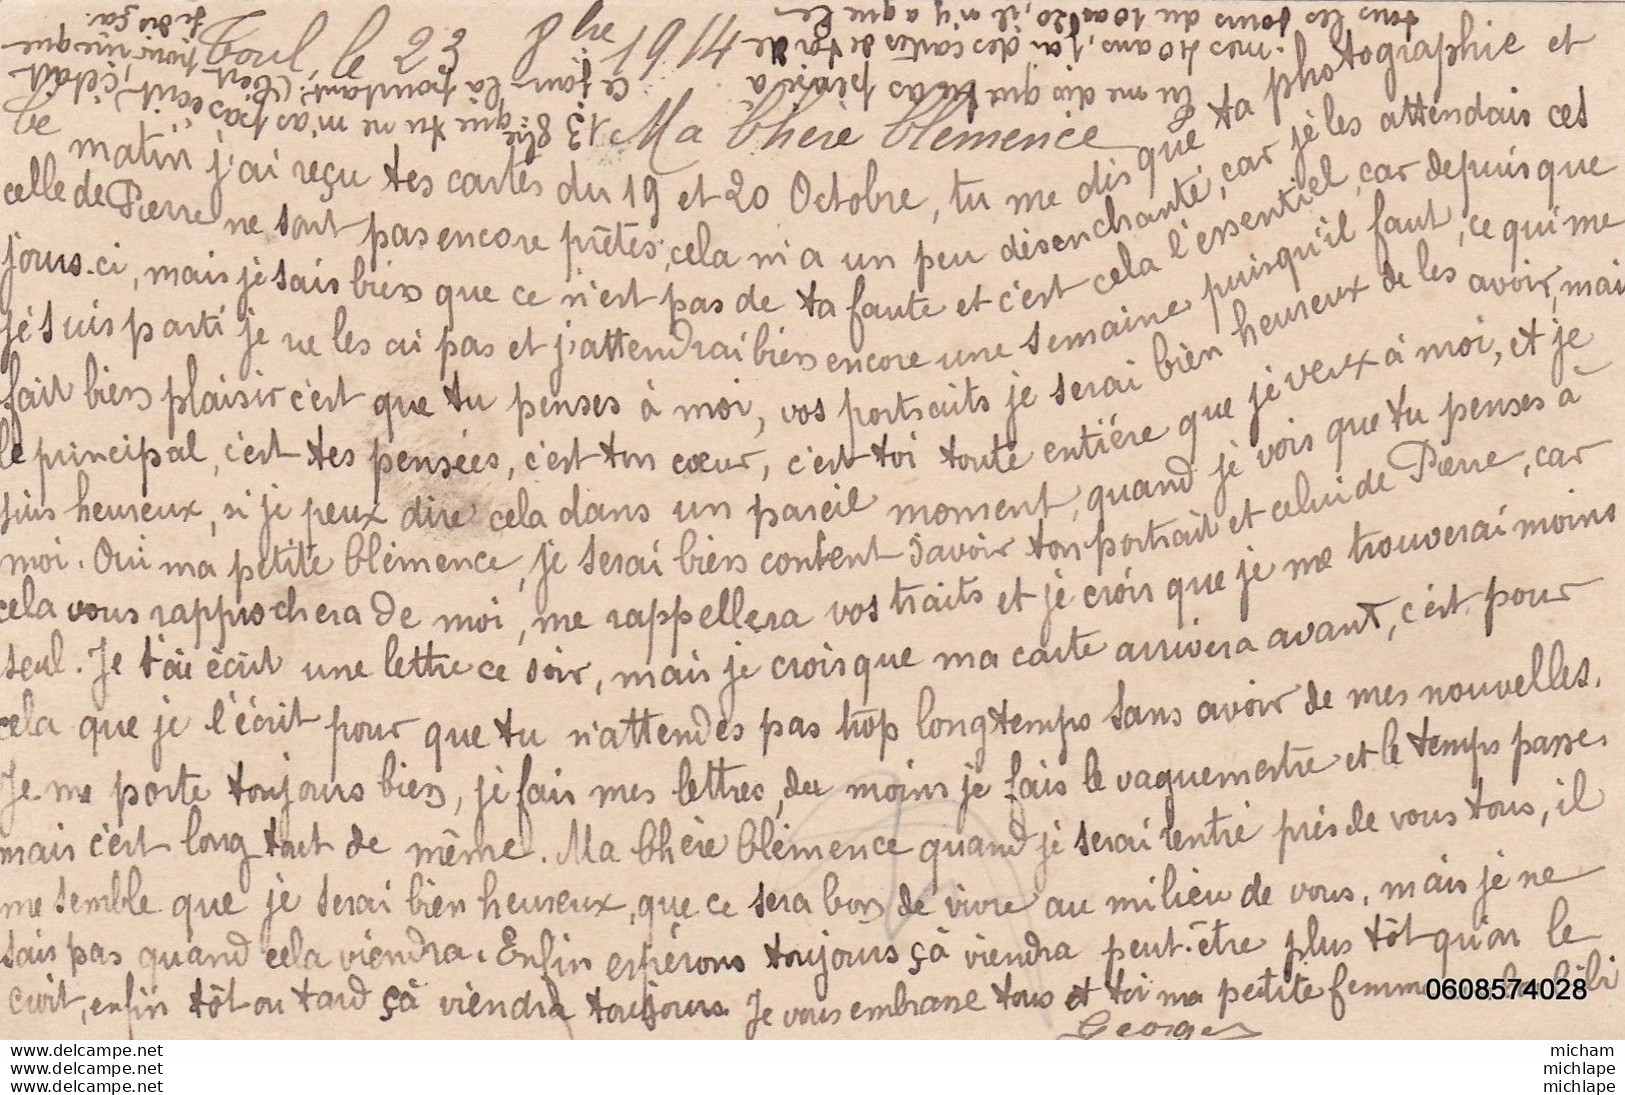 Toul, le 23 8bre 1914
Ma Chère Clémence
Ce matin j'ai reçu tes cartes du 19 et 20 Octobre, tu me dis que ta photographie et
celle de Pierre ne sont pas encore prêtes, cela m'a un peu désenchanté, car je les attendais ces
jours-ci, mais je sais bien que ce n'est pas de ta faute et c'est cela l'essentiel, car depuis que
je suis parti je ne les ai pas et j'attendrai bien encore une semaine puisqu'il faut, ce qui me
fait bien plaisir c'est que tu penses à moi, vos portraits je serai bien heureux de les avoir, mais
le principal, c'est tes pensées, c'est ton cœur, c'est toi toute entière que je veux à moi, et je
suis heureux, si je peux dire cela dans un pareil moment, quand je vois que tu penses à
moi. Oui ma petite Clémence, je serai bien content d'avoir ton portrait et celui de Pierre, car
cela vous rapprochera de moi, me rappellera vos traits et je crois que je me trouverai moins
seul. Je t'ai écrit une lettre ce soir, mais je crois que ma carte arrivera avant, c'est pour
cela que je l'écrit pour que tu n'attendes pas trop longtemps sans avoir de mes nouvelles.
Je me porte toujours bien, je fais mes lettres, du moins je fais le vaguemestre et le temps passe,
mais c'est long tout de même. Ma Chère Clémence quand je serai rentré près de vous tous, il
me semble que je serai bien heureux, que ce sera bon de vivre au milieu de vous, mais je ne
sais pas quand cela viendra. Enfin espérons toujours çà viendra peut-être plus tôt qu'on le
croit, enfin tôt ou tard çà viendra toujours. Je vous embrasse tous et toi ma petite femme
Georges
tous les jours du 10 au 20, il n'y a que le
mes 10 ans, j'ai des cartes de toi de
tu me dis que tu as pensé à
13 8bre que tu ne m'as pas écrit, c'était
ce jour là pourtant. (C'est pour rire que
je dis ça.
0608574028
www.delcampe.net
www.delcampe.net
www.delcampe.net
micham
michlape
michlape